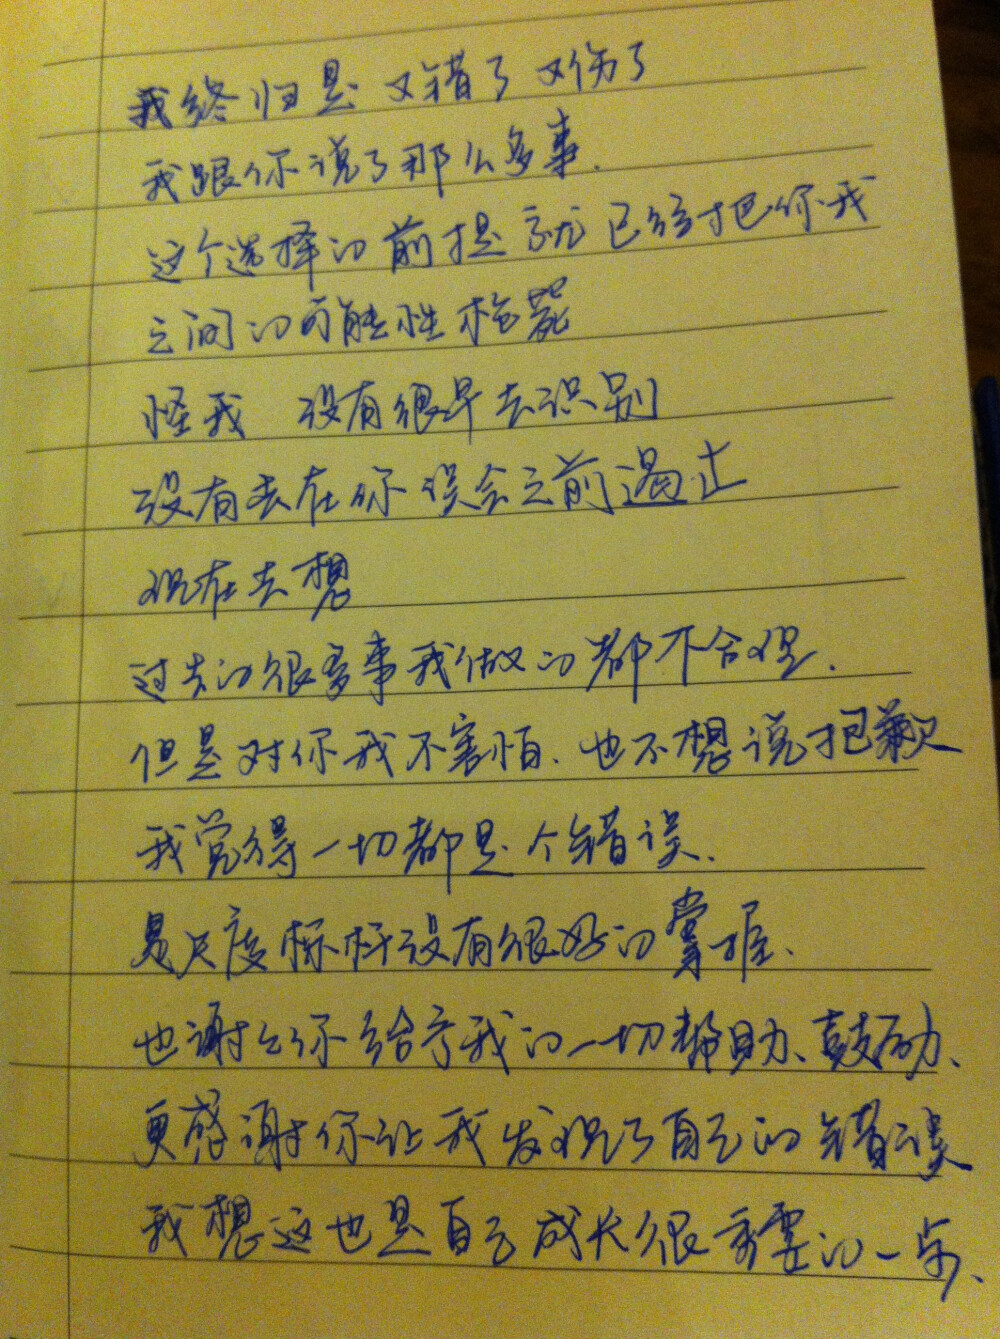 我终归是 又错了 又伤了
我跟你说了那么多事.
这个选择的前提就已经把你我
之间的可能性枪毙
怪我 没有很早去识别
没有去在你误会之前遏止
现在去想
过去的很多事我做的都不合理.
但是对你我不害怕.也不想说抱歉
我觉得一切都是个错误.
是尺度标杆没有很好的掌握.
也谢谢你给予我的一切帮助、鼓励、
更感谢你让我发现了自己的错误
我想这也是自己成长很重要的一点、